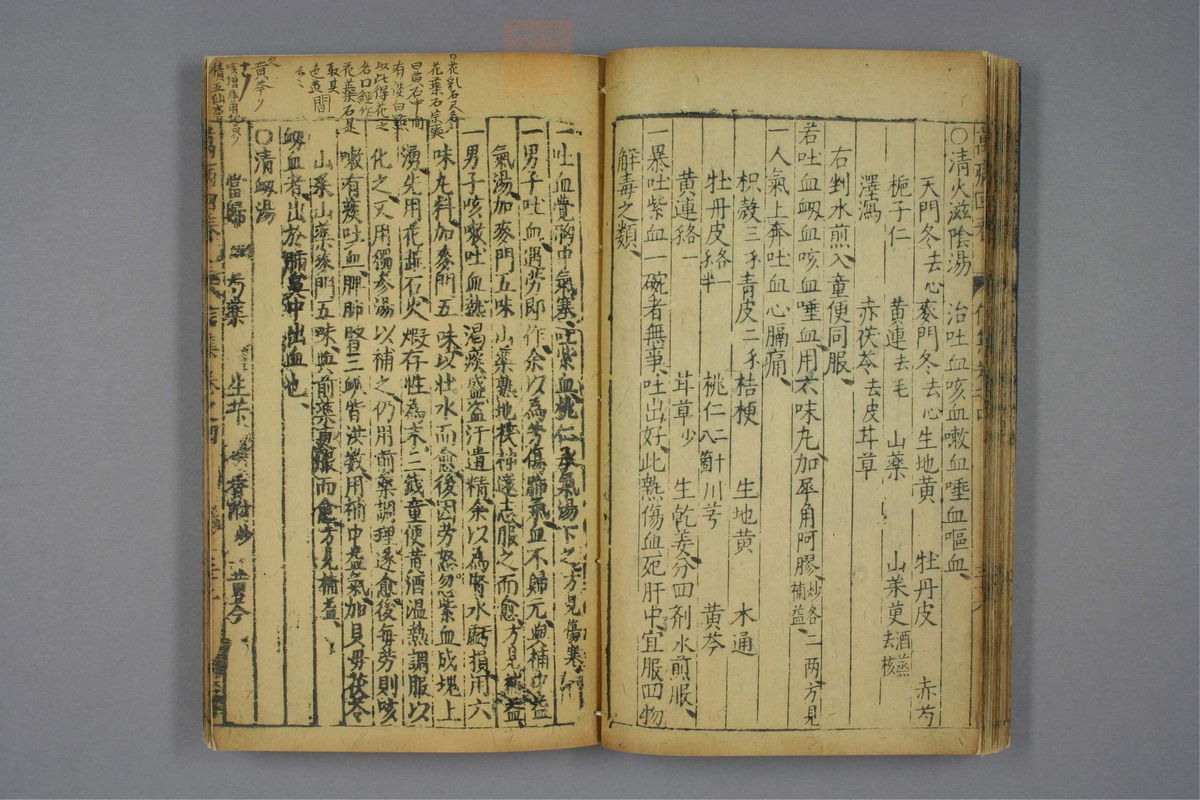 ○清火滋陰湯　治吐血咳血嗽血唾血嘔血
天門冬去心　麥門冬去心　生地黃　牡丹皮　赤芍
梔子仁　黃連去毛　山藥　山茱萸酒蒸去核
澤瀉　赤茯苓去皮　甘草
右剉水煎入童便同服
若吐血衂血咳血唾血用六味丸加犀角阿膠炒各二兩方見補益
一人氣上奔吐血心膈痛
枳殼三　青皮二　桔梗　生地黃　木通
牡丹皮各一半　桃仁二十八箇　川芎　黃芩
黃連各一　甘草少　生乾姜分四劑水煎服
一暴吐紫血一碗者無事吐出好此熱傷血死肝中宜服四物
解毒之類
一吐血覺胸中氣塞吐紫血桃仁承氣湯下之方見傷寒
一男子吐血遇勞即作余以為勞傷肺氣血不歸元與補中益
氣湯加麥門五味山藥熟地茯神遠志服之而愈方見補益
一男子咳嗽吐血熱渴痰盛盜汗遺精余以為腎水虧損用六
味丸料加麥門五味以壯水而愈後因勞怒忽紫血成塊上
湧先用花蕊石火煆存性為末三錢童便黃酒溫熱調服以
化之又用獨參湯以補之仍用前藥調理遂愈後每勞則咳
嗽有痰吐血脾肺腎三脈皆洪數用補中益氣加貝母茯苓
山茱山藥麥門五味與前藥兼服而愈方見補益
衂血者出於肺鼻中出血也
○清衂湯
當歸　芍藥　生芐　香附炒　黃芩
花乳石又名
花蕊石宗奭
曰當石中間
有淡白點
以此得花之
名口經作
花蕊石是
取其
色黃
黃芩